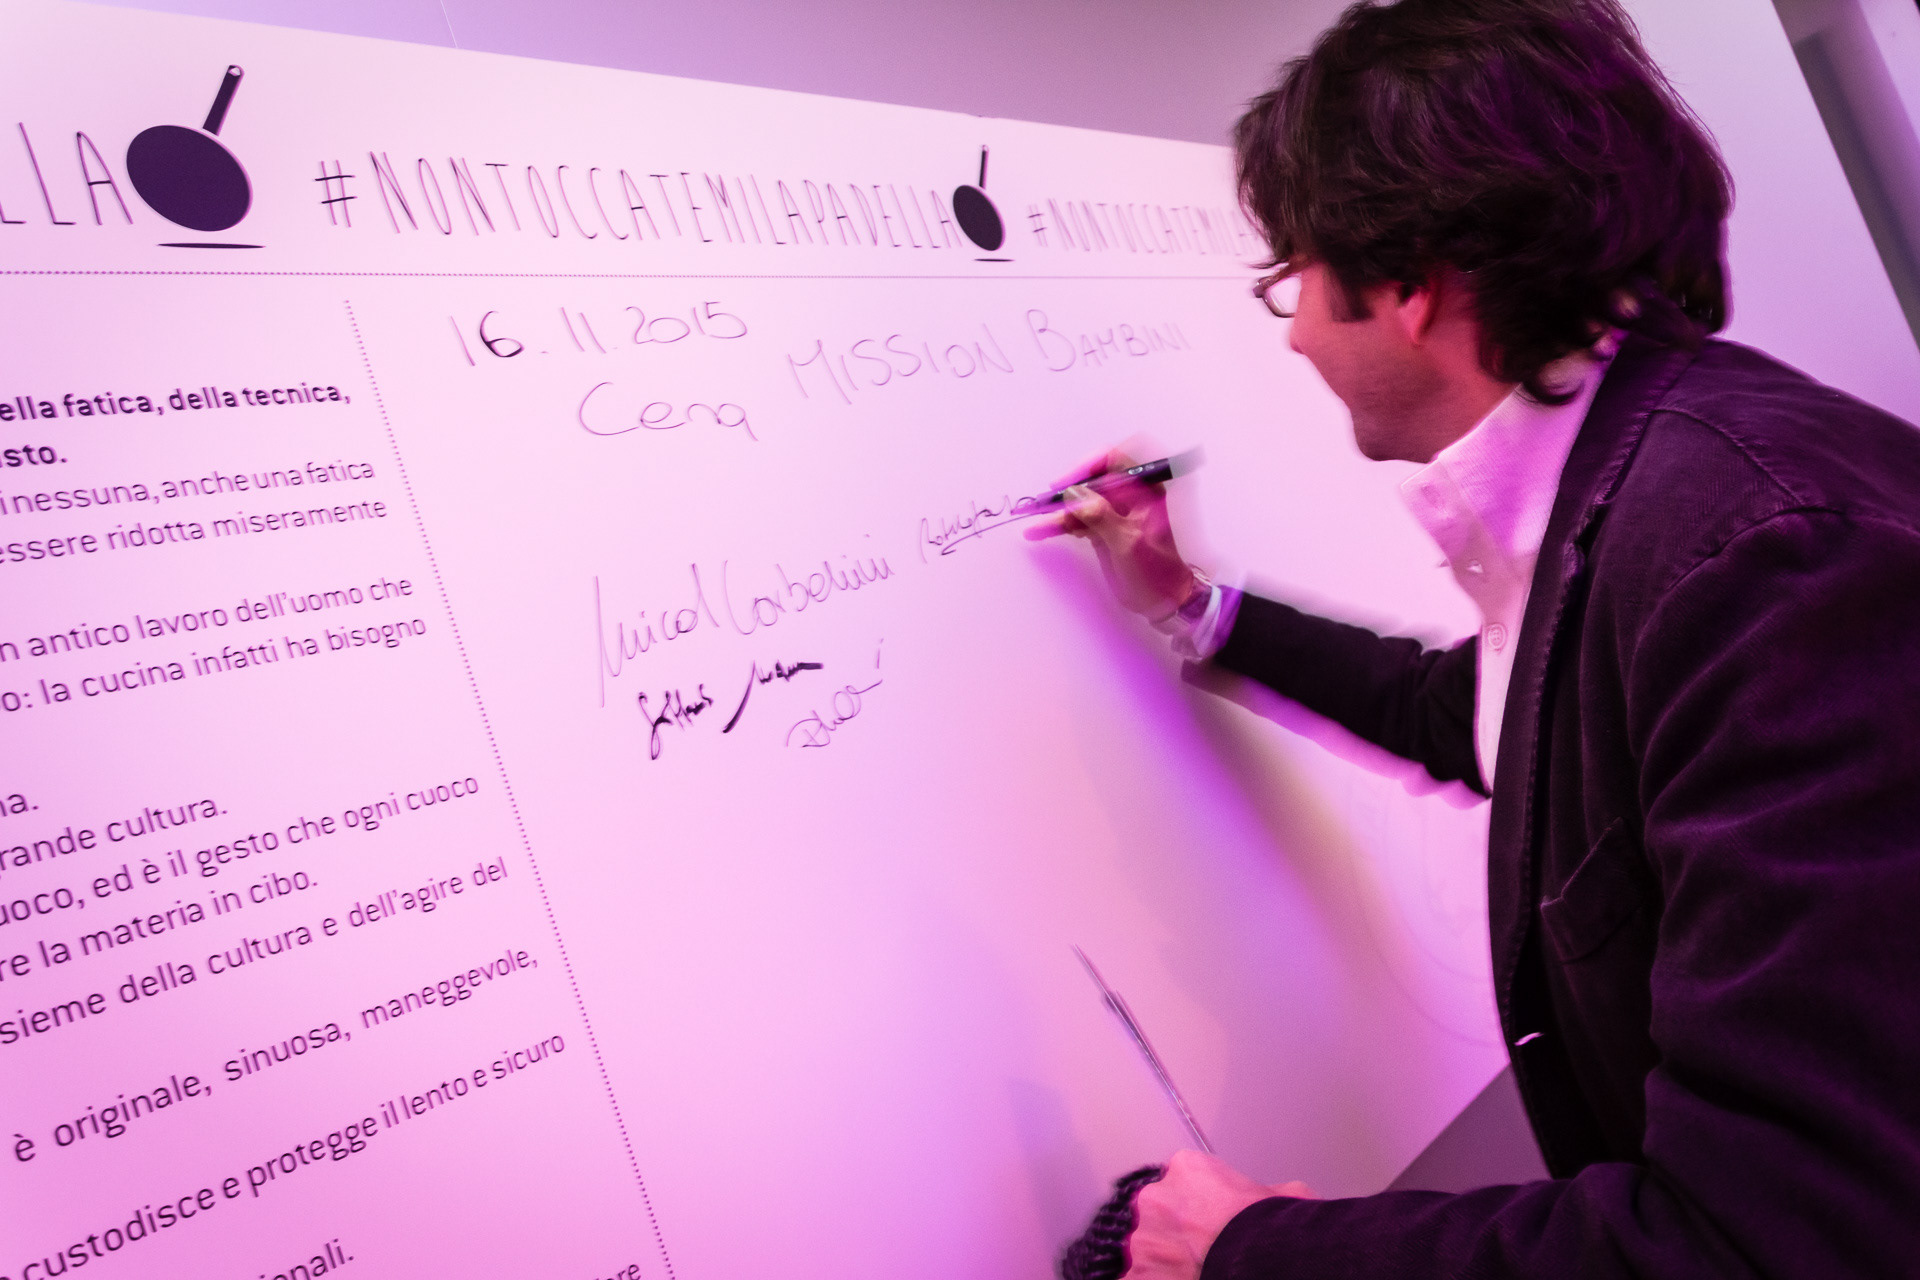 LLA #NONTOCCATEMILAPADELLA #NONTOCCATEMILA
ella fatica, della tecnica,
sto.
i nessuna, anche una fatica
essere ridotta miseramente
n antico lavoro dell'uomo che
o: la cucina infatti ha bisogno
a.
rande cultura.
uoco, ed è il gesto che ogni cuoco
re la materia in cibo.
sieme della cultura e dell'agire del
è originale, sinuosa, maneggevole,
custodisce e protegge il lento e sicuro
onali.
16.11.2015
Cena MISSION BAMBINI